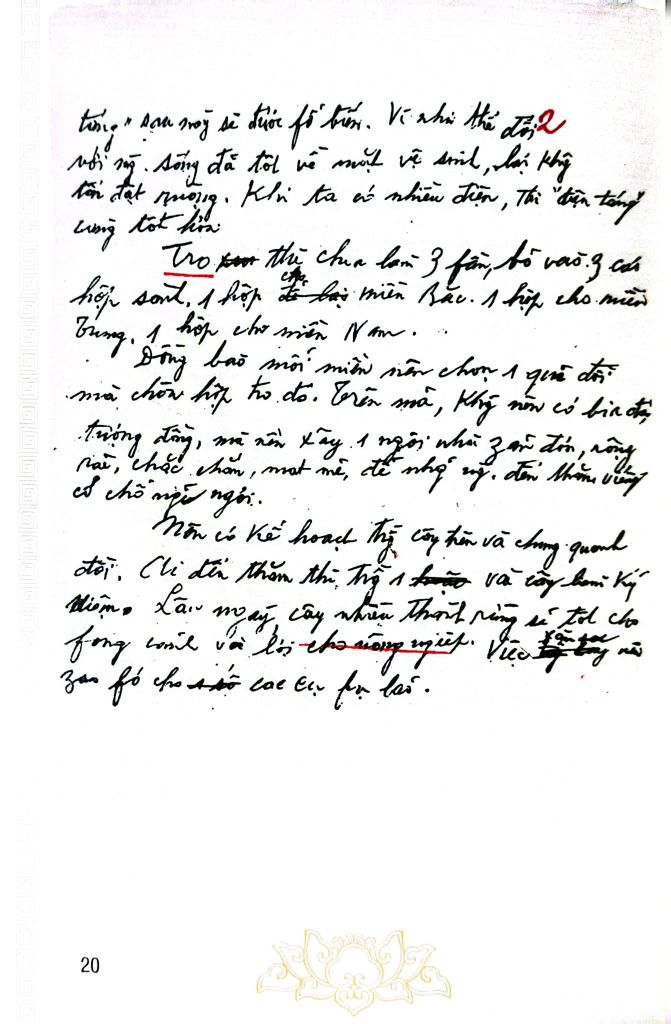 táng" sau này sẽ được fổ biến. Vì như thế đối 2
với ng. sống đã tốt về mặt vệ sinh, lại khg
tốn đất ruộng. Khi ta có nhiều điện, thì "điện táng"
càng tốt hơn.
Tro thì chia làm 3 fần, bỏ vào 3 cái
hộp sành. 1 hộp cho để lại miền Bắc. 1 hộp cho miền
Trung. 1 hộp cho miền Nam.
Đồng bào mỗi miền nên chọn 1 quả đồi
mà chôn hộp tro đó. Trên mả, khg nên có bia đá,
tượng đồng, mà nên xây 1 ngôi nhà zản đơn, rộng
rãi, chắc chắn, mát mẻ, để nhg ng. đến thăm viếng
có chỗ nghỉ ngơi.
Nên có kế hoạch trg cây trên và chung quanh
đồi. Ai đến thăm thì trg 1 vài cây làm kỷ
niệm. Lâu ngày, cây nhiều thành rừng sẽ tốt cho
fong cảnh và lợi cho nông ngiệp. Việc săn sóc nên
zao fó cho 1 số các cụ fụ lão.
20